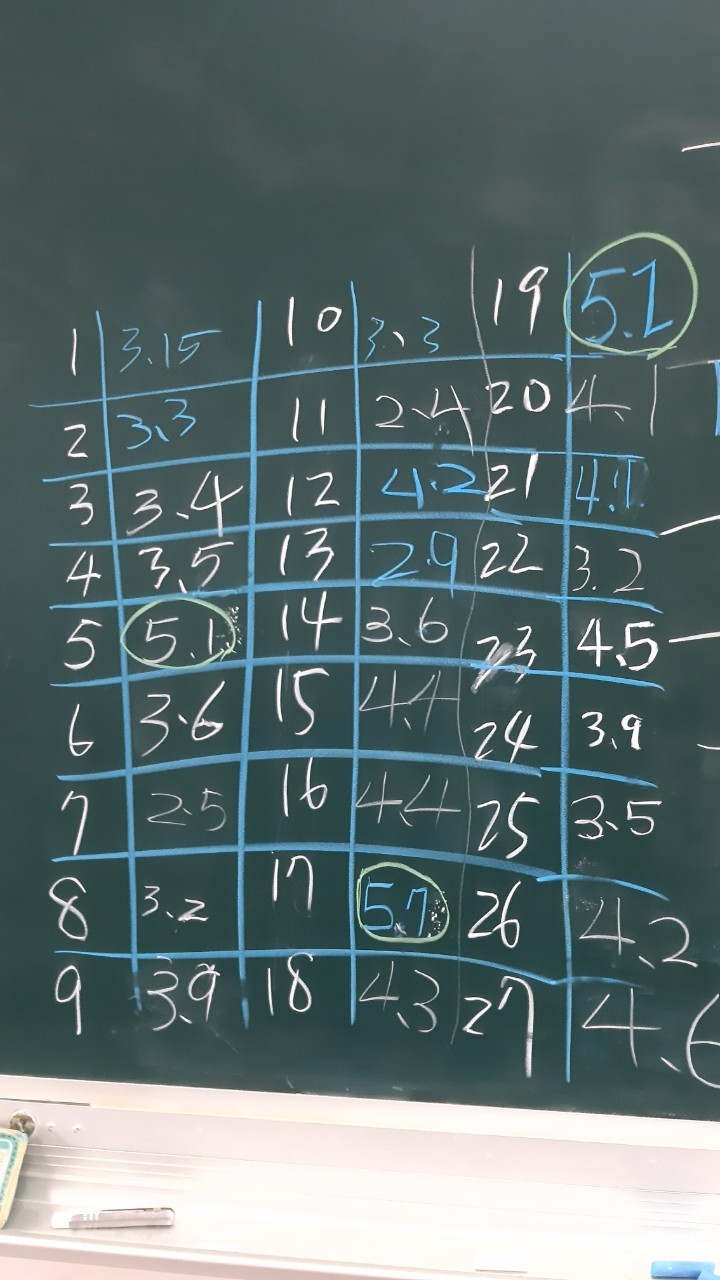 1 3.15 10 3.3 19 5.1
2 3.3 11 2.4 20 4.1
3 3.4 12 4.2 21 4.1
4 3.5 13 2.9 22 3.2
5 5.1 14 3.6 23 4.5
6 3.6 15 4.4 24 3.9
7 2.5 16 4.4 25 3.5
8 3.2 17 5.7 26 4.2
9 3.9 18 4.3 27 4.6